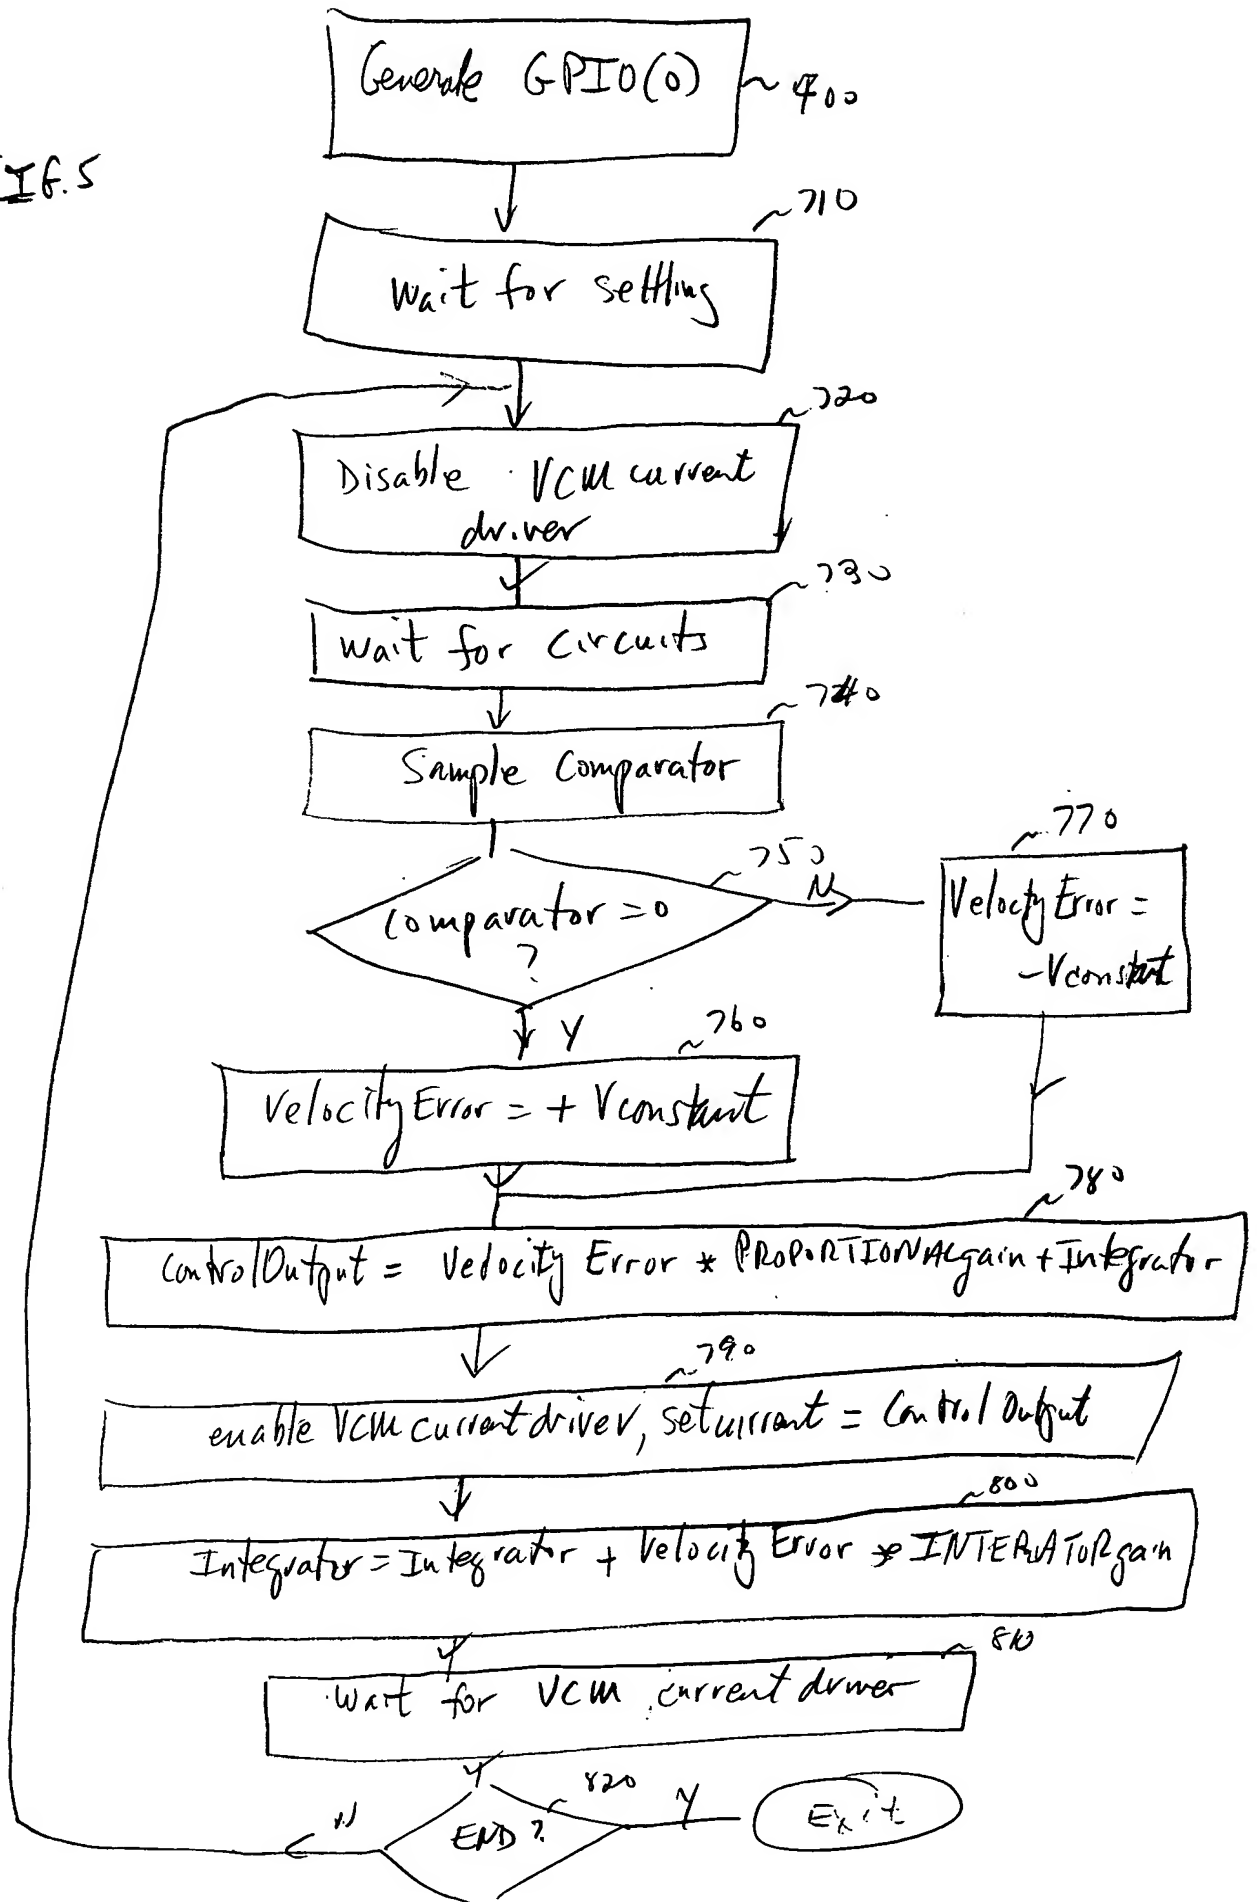 Generate GPIO(0)
~ 400
IG.5
~710
wait for settling
~720
Disable VCM current
driver
~730
wait for circuits
~740
Sample Comparator
~770
~750
N
Comparator = 0
?
Velocity Error =
- Vconstant
Y
~760
Velocity Error = + Vconstant
~780
Control Output = Velocity Error * PROPORTIONALgain + Integrator
~790
enable VCM current driver, set current = Control Output
~800
Integrator = Integrator + Velocity Error * INTERATORgain
~810
Wait for VCM current driver
820
N
END ?
Y
Exit